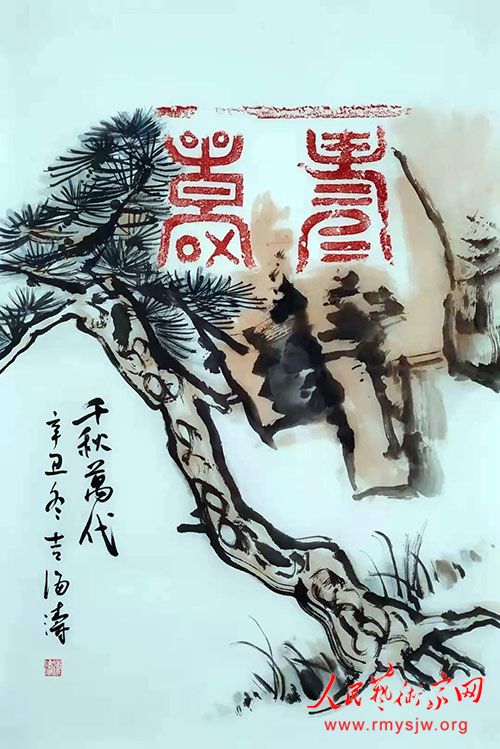 千秋萬代
辛丑冬吉海濤
人民藝術家网
www.rmysjw.org